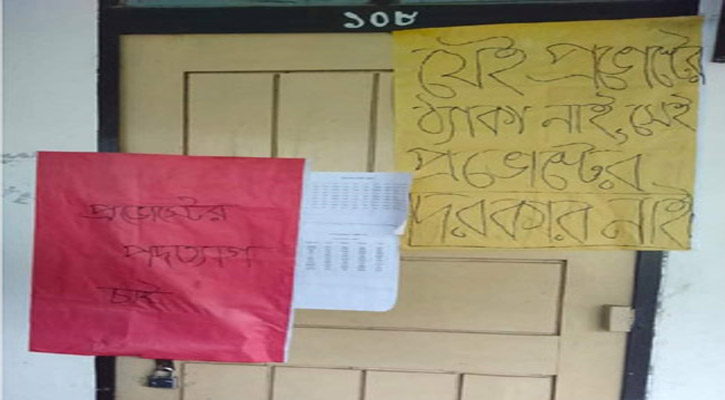 ১০৮
যেই প্রভোস্টের
ঠ্যাকা নাই, সেই
প্রভোস্টের
দরকার নাই
প্রভোস্টের
পদত্যাগ
চাই